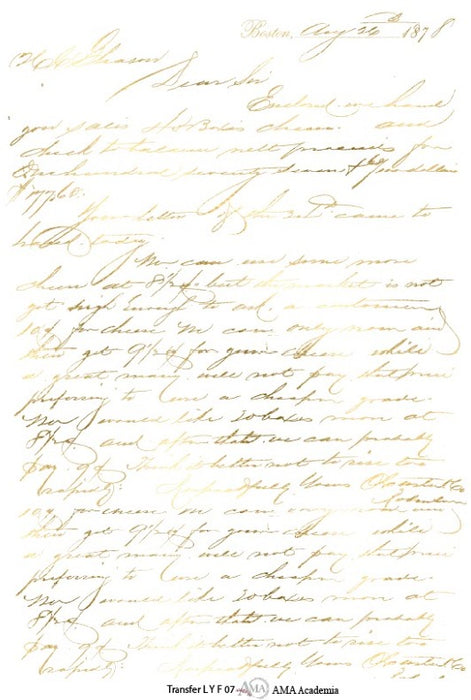 Boston, Aug 26 1878
Gleason
Dear Sir
Enclosed we hand
you sales 40 Boxes cheese and
check to balance nett proceeds for
One hundred seventy seven & 60/100 dollars
$177.60.
Your letter of the came to
hand today.
We can use some more
cheese at 8½¢. but the market is not
yet high enough to ask a customer
10¢ for cheese We can only now and
then get 9½¢ for your cheese while
a great many will not pay that price
preferring to use a cheaper grade.
We would like 20 boxes more at
8½¢. and after that we can probably
pay 9¢ Think it better not to rise too
rapidly. Respectfully Yours
10¢ for cheese We can only now and
then get 9½¢ for your cheese while
a great many will not pay that price
preferring to use a cheaper grade.
We would like 20 boxes more at
8½¢. and after that we can probably
pay 9¢ Think it better not to rise too
rapidly. Respectfully Yours
Transfer LYF 07 AMA AMA Academia